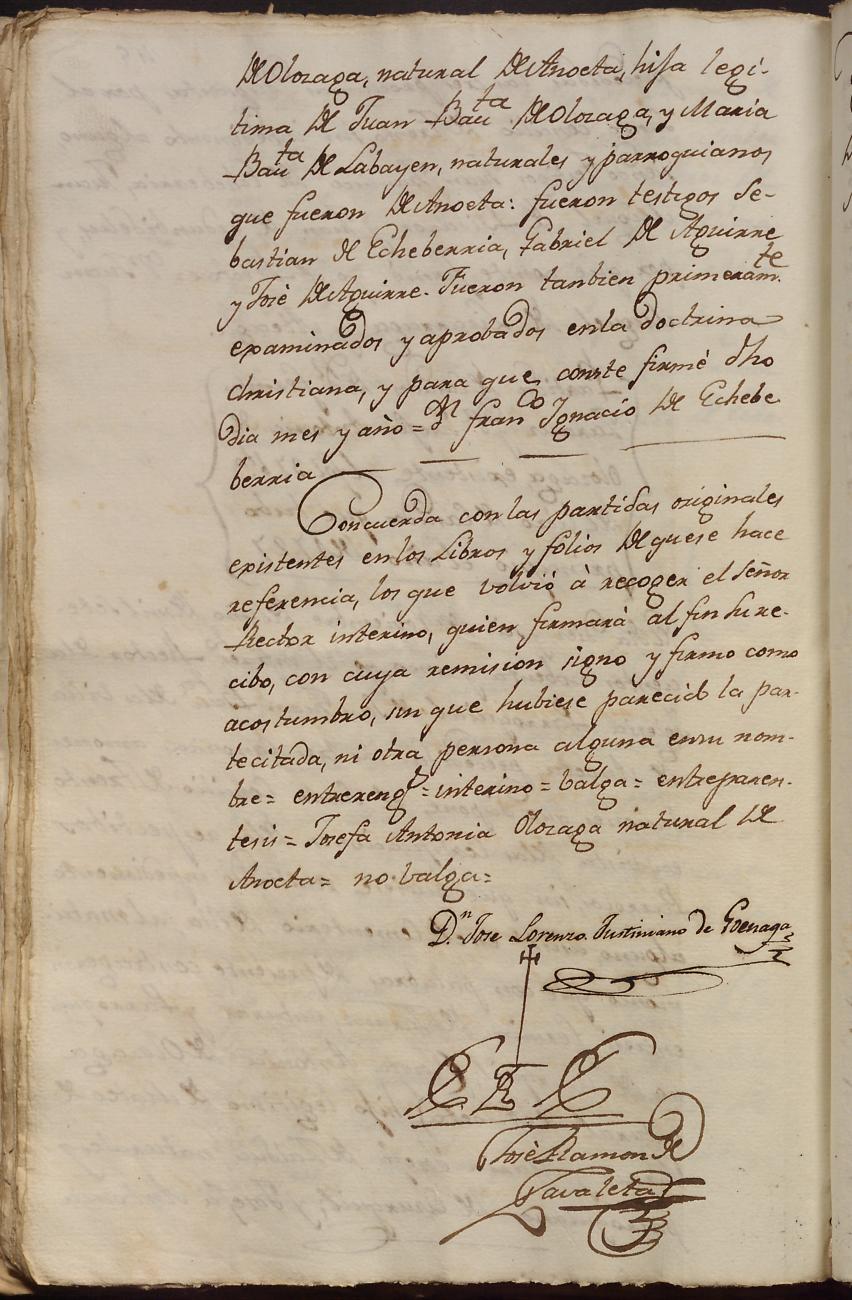 De Olozaga, natural De Anoeta, hija legi-
tima De Juan Bauta De Olozaga, y Maria
Bauta De Labayen, naturales y parroquianos
que fueron De Anoeta: fueron testigos Se-
bastian de Echeberria, Gabriel De Aguirre
y Josè De Aguirre. Fueron tanbien primeramte
examinados y aprobados en la doctrina
christiana, y para que conste firmé dho
dia mes y año = Dn Franco Ignacio De Echebe
berria
Concuerda con las partidas originales
existentes en los Libros y folios De que se hace
referencia, los que volvió à recoger el Señor
Rector interino, quien firmarà al fin su re-
cibo, con cuya remision signo y firmo como
acostumbro, sin que hubiese parecido la par-
te citada, ni otra persona alguna en su nom-
bre = entrerengs = interino = valga = entreparen-
tesis = Josefa Antonia Olozaga natural De
Anoeta = no valga =
Dn Jose Lorenzo Justiniano de Goenaga
Josè Ramon de
Zavaleta